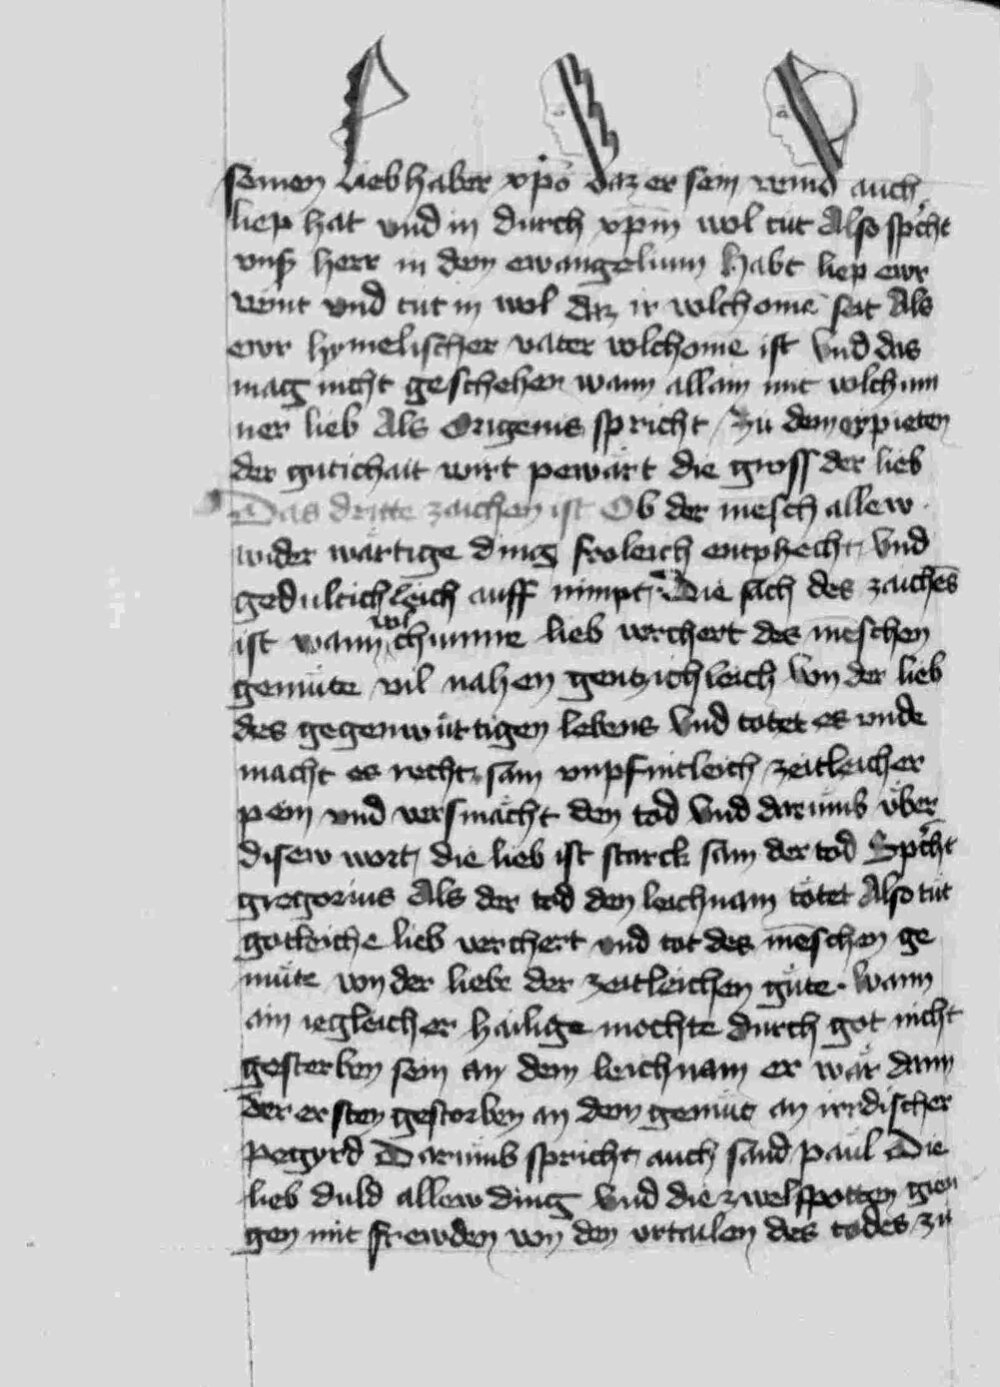 seinen liebhaber xpō daz er sein veind auch
liep hat vnd in durch xpm̄ wol tut Also spricht
vnß herr in dem ewangelium Habt liep ewr
veint vnd tut in wol daz ir volchomē seit Als
ewr hymelischer vater volchomē ist Vnd das
mag nicht geschehen wann allain mit volchum
ner lieb Als Origenis spricht / Zu dem erpieten
der gutichait wirt pewärt die gross der lieb
Das dritte zaichen ist Ob der mēsch allew
wider wärtige ding froleich entphecht Vnd
gedultichleich auff nimpt Die sach des zaichēs
ist wann volchumne lieb verchert des mēschen
gemüte vil nahen gentzichleich von der lieb
des gegenwürtigen lebens Vnd totet es vnde
macht es recht sam vnpfintleich zeitleicher
pein vnd versmächt den tod Vnd darumb über
disew wort die lieb ist starck sam der tod Spricht
gregorius Als der tod den leichnam tötet Also tüt
gotleiche lieb verchert vnd tot des mēschen ge
müte von der liebe der zeitleichen güte. Wann
ain iegleicher hailige mochte durch got nicht
gestorben sein an dem leichnam er wär dann
der ersten gestorben an dem gemüt an irrdischer
pegyrd Darumb spricht auch sand paul Die
lieb duld allew ding Vnd die zwelfpotten gien
gen mit frewden von den vrtailen des todes zu